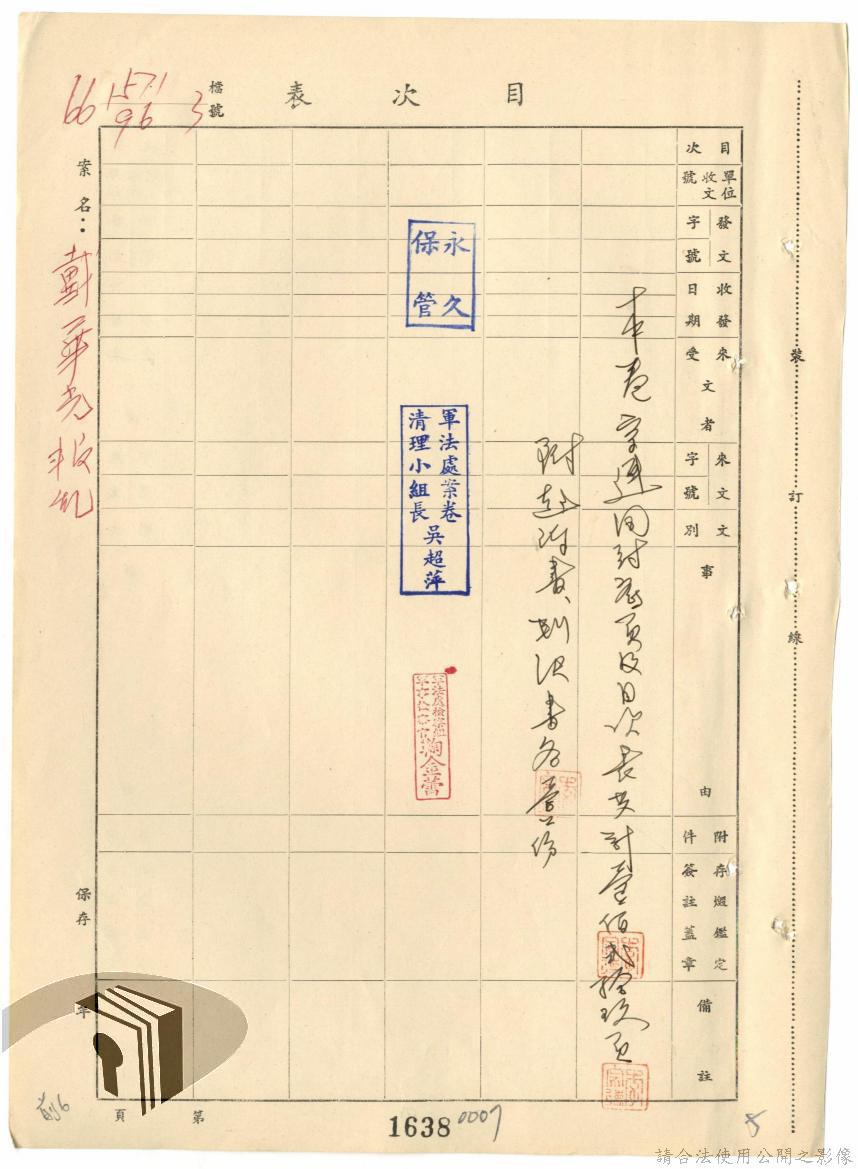 目次表
檔號
66 1571/96 3
案名：戴華光叛亂
目次
單位收文號
發文字號
收發日期
來文受文者
來文字號
文別
事由
附件
存燬鑑定簽註蓋章
備註
本卷字連同封底頁及目次表共計壹佰貳拾玖頁
附起訴書、判決書各壹份
永久保管
軍法處案卷
清理小組長吳超萍
裝訂線
保存年
第頁
前6
1638
0007
8
請合法使用公開之影像